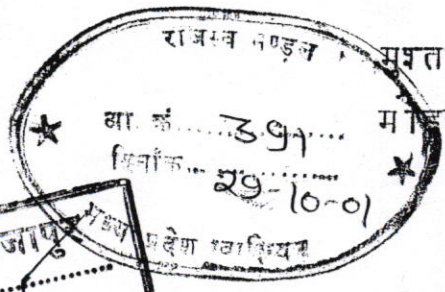 राजस्व मण्डल
आ. क्रं. ..... 391 .....
दिनांक ... 29-10-01
मध्य प्रदेश ग्वालियर
मुश्त
जापु